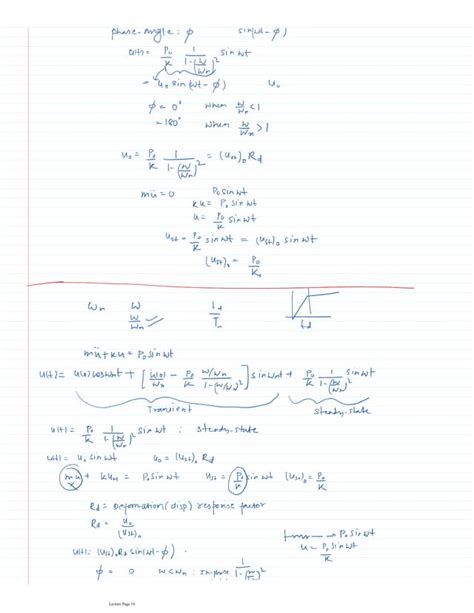 phase-angle : φ sin(ωt-φ)
u(t)= P₀/k 1/(1-(ω/ωn)²) sin ωt
= u₀ sin(ωt-φ) u₀
φ = 0° when ω/ωn < 1
= 180° when ω/ωn > 1
u₀ = P₀/k 1/(1-(ω/ωn)²) = (ust)₀ Rd
mü = 0 P₀ sin ωt
ku = P₀ sin ωt
u = P₀/k sin ωt
ust = P₀/k sin ωt = (ust)₀ sin ωt
(ust)₀ = P₀/k
ωn ω td
ω/ωn Tn td
mü + ku = P₀ sin ωt
u(t) = u(0) cos ωnt + [u̇(0)/ωn - P₀/k (ω/ωn)/(1-(ω/ωn)²)] sin ωnt + P₀/k 1/(1-(ω/ωn)²) sin ωt
Transient Steady-state
u(t) = P₀/k 1/(1-(ω/ωn)²) sin ωt : Steady-state
u(t) = u₀ sin ωt u₀ = (ust)₀ Rd
mü + kust = P₀ sin ωt ust = P₀/k sin ωt (ust)₀ = P₀/k
Rd = Deformation (disp) response factor
Rd = u₀/(ust)₀
→ P₀ sin ωt
u(t) = (ust)₀ Rd sin(ωt-φ) . u = P₀ sin ωt/k
φ = 0 ω<ωn : in-phase 1/(1-(ω/ωn)²)
Lecture Page 16